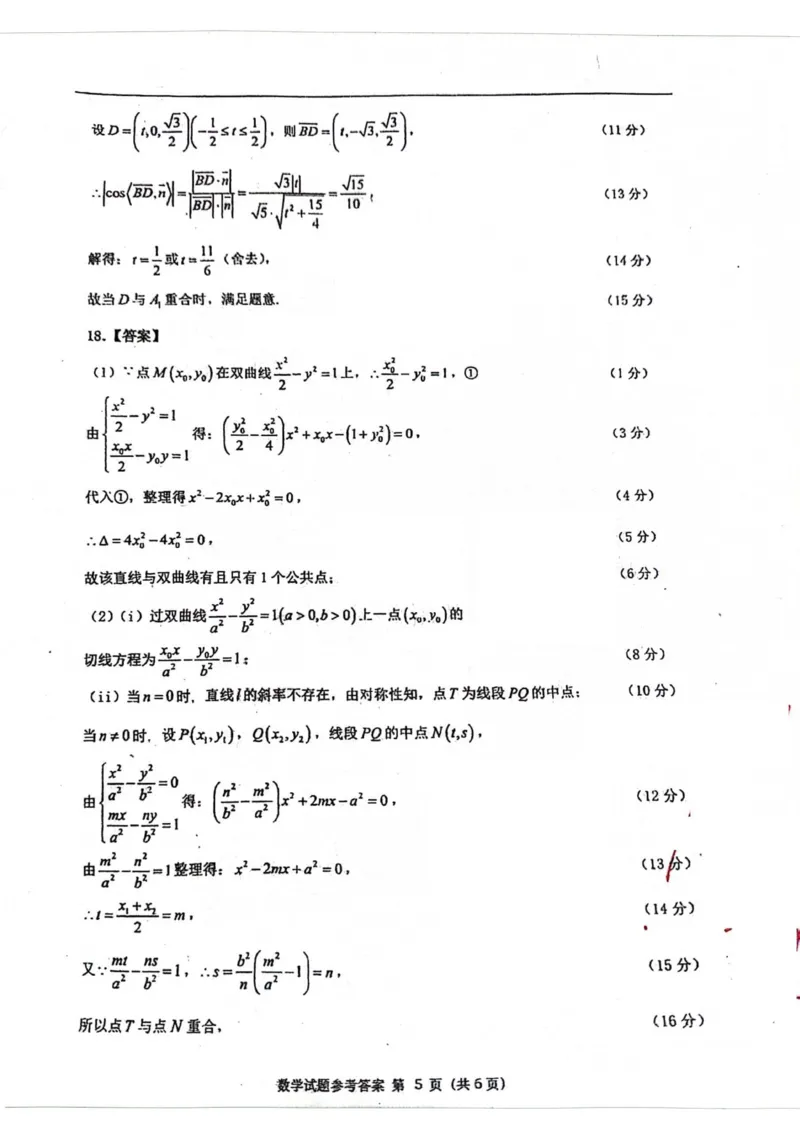 设D=(t,0,√3/2)(-1/2≤t≤1/2)，则BD=(t,-√3,√3/2)， （11分）
∴|cos⟨BD,n⟩|=|BD·n|/(|BD|·|n|)=√3|t|/(√5·√(t²+15/4))=√15/10， （13分）
解得：t=1/2或t=11/6（舍去）， （14分）
故当D与A₁重合时，满足题意. （15分）
18.【答案】
（1）∵点M(x₀,y₀)在双曲线x²/2-y²=1上，∴x₀²/2-y₀²=1，① （1分）
由{x²/2-y²=1, x₀x/2-y₀y=1 得：(y₀²/2-x₀²/4)x²+x₀x-(1+y₀²)=0， （3分）
代入①，整理得x²-2x₀x+x₀²=0， （4分）
∴Δ=4x₀²-4x₀²=0， （5分）
故该直线与双曲线有且只有1个公共点； （6分）
（2）（i）过双曲线x²/a²-y²/b²=1(a>0,b>0)上一点(x₀,y₀)的
切线方程为x₀x/a²-y₀y/b²=1； （8分）
（ii）当n=0时，直线l的斜率不存在，由对称性知，点T为线段PQ的中点； （10分）
当n≠0时，设P(x₁,y₁)，Q(x₂,y₂)，线段PQ的中点N(t,s)，
由{x²/a²-y²/b²=0, mx/a²-ny/b²=1 得：(n²/b²-m²/a²)x²+2mx-a²=0， （12分）
由m²/a²-n²/b²=1整理得：x²-2mx+a²=0， （13分）
∴t=(x₁+x₂)/2=m， （14分）
又∵mt/a²-ns/b²=1，∴s=b²/n(m²/a²-1)=n， （15分）
所以点T与点N重合， （16分）
数学试题参考答案 第 5 页（共6页）